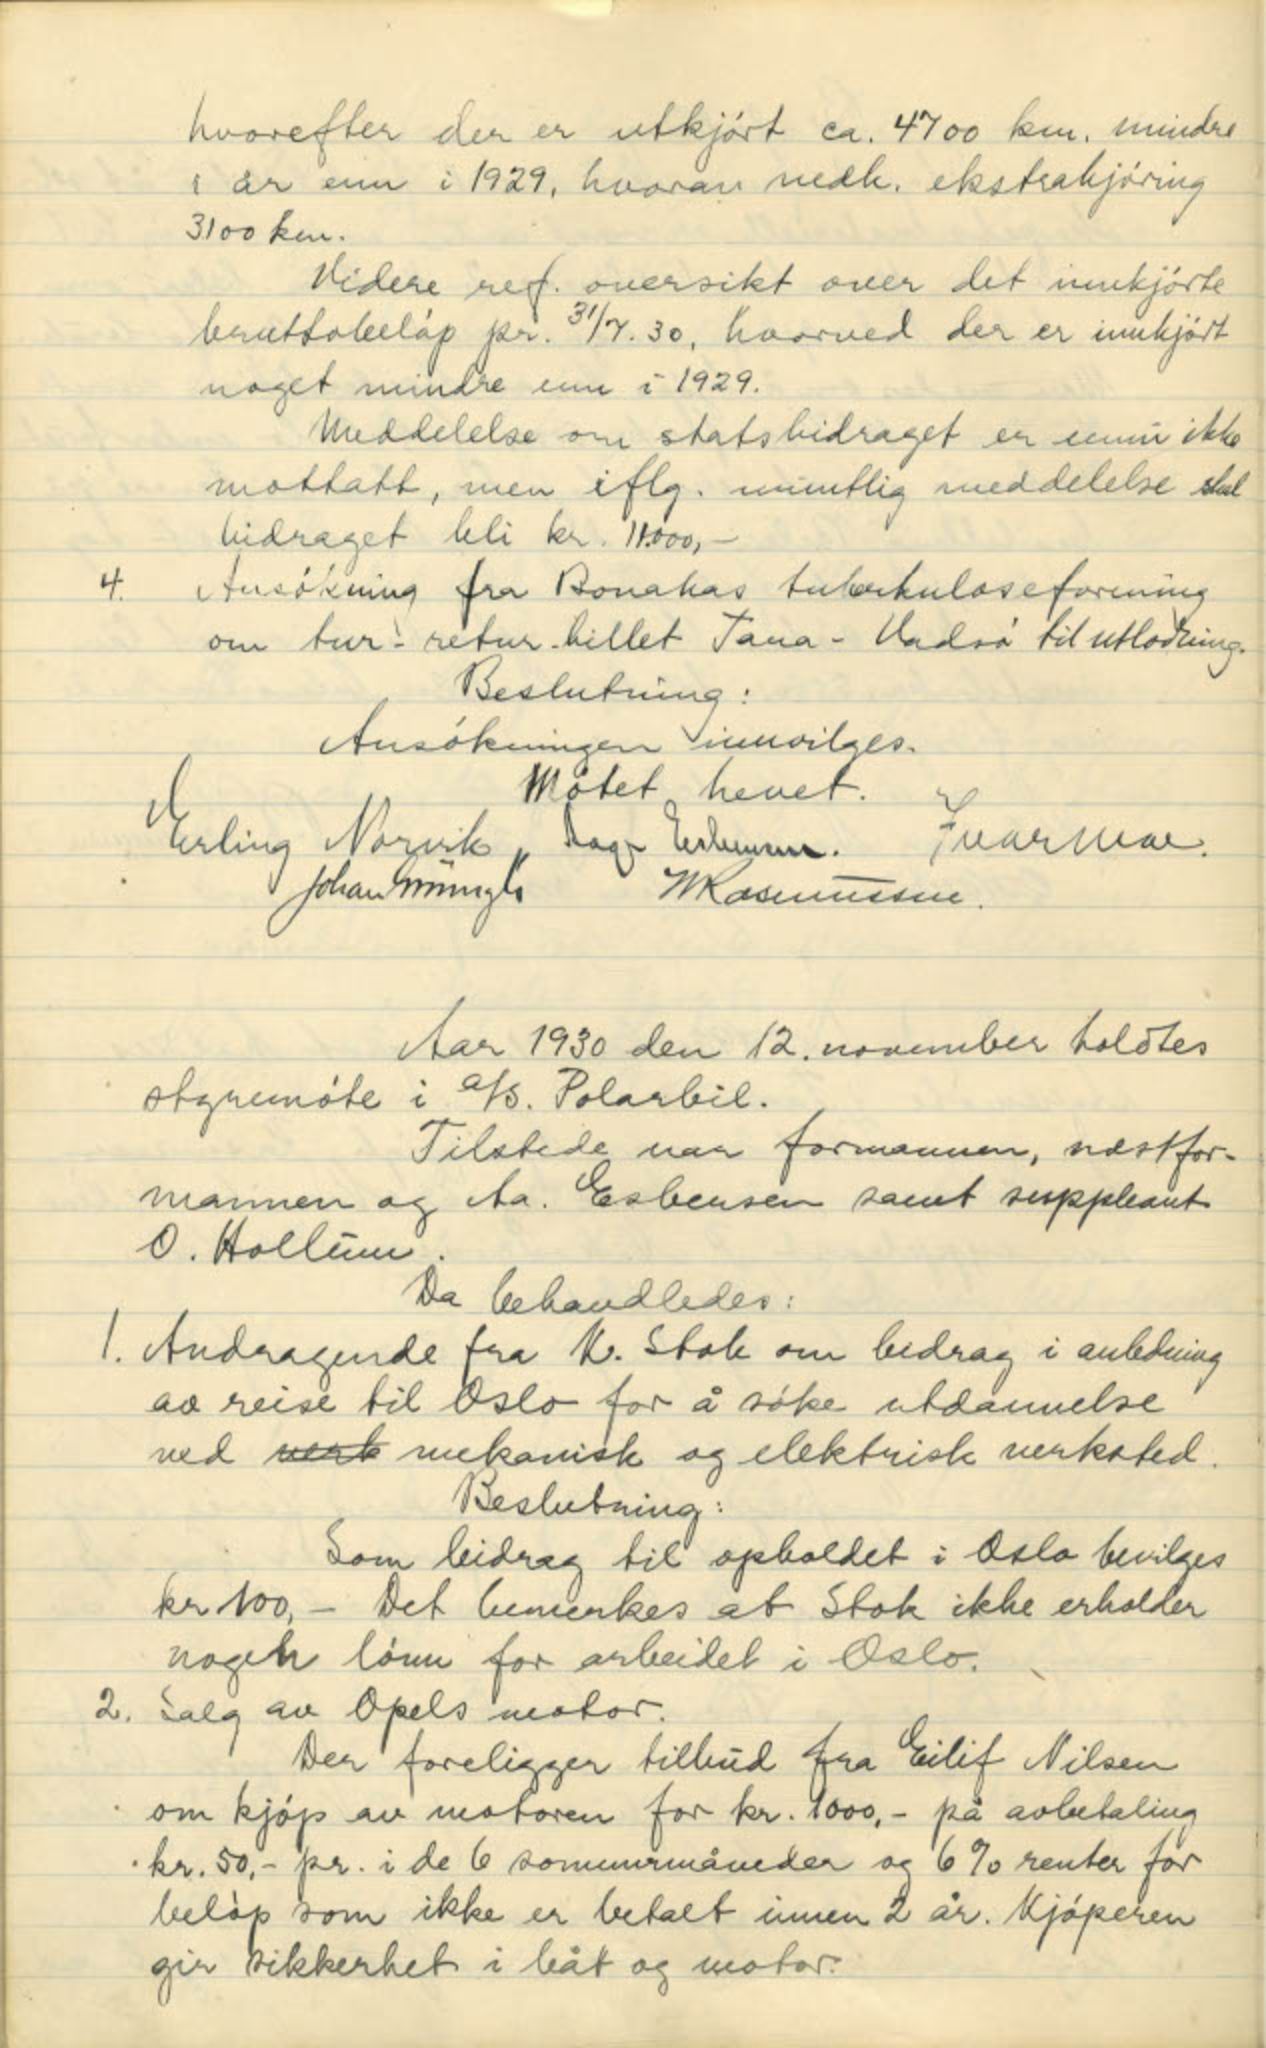 hvorefter der er utkjørt ca. 4700 km. mindre
i år enn i 1929, hvorav nedk. ekstrakjøring
3100 km.
Videre ref. oversikt over det innkjørte
bruttobeløp pr. 31/7. 30, hvorved der er innkjørt
noget mindre enn i 1929.
Meddelelse om statsbidraget er ennu ikke
mottatt, men iflg. muntlig meddelelse skal
bidraget bli kr. 11.000,-
4. Ansøkning fra Bonakas tuberkuloseforening
om tur-retur-billet Tana - Vadsø til utlodning.
Beslutning:
Ansøkningen innvilges.
Møtet hevet.
Erling Norvik Aage Esbensen. Ivar Moe.
Johan Rasmussen.
Aar 1930 den 12. november holdtes
styremøte i a/s. Polarbil.
Tilstede var formannen, næstfor-
mannen og Aa. Esbensen samt suppleant
O. Hollum.
Da behandledes:
1. Andragende fra K. Stok om bidrag i anledning
av reise til Oslo for å søke utdannelse
ved verk mekanisk og elektrisk verksted.
Beslutning:
Som bidrag til opholdet i Oslo bevilges
kr 100,- Det bemerkes at Stok ikke erholder
nogen lønn for arbeidet i Oslo.
2. Salg av Opels motor.
Der foreligger tilbud fra Eilif Nilsen
om kjøp av motoren for kr. 1000,- på avbetaling
kr. 50,- pr. i de 6 sommermåneder og 6% renter for
beløp som ikke er betalt innen 2 år. Kjøperen
gir sikkerhet i båt og motor.